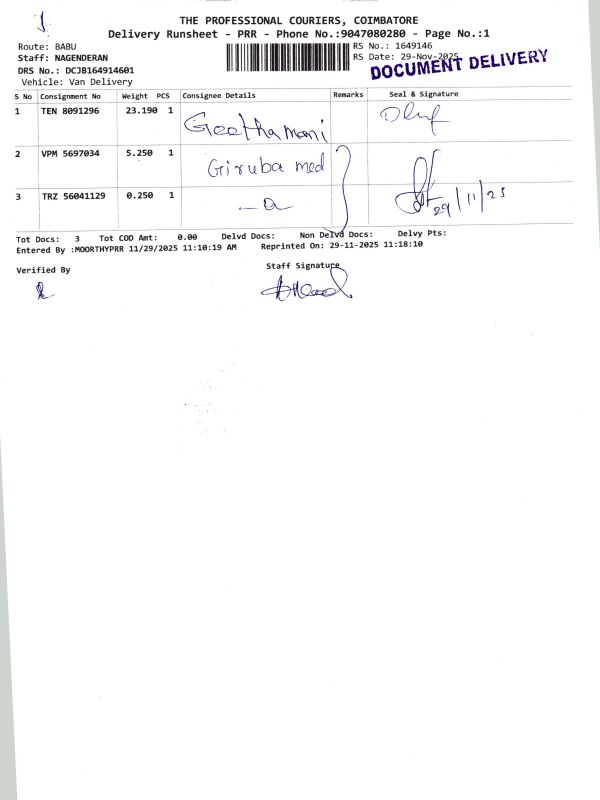 THE PROFESSIONAL COURIERS, COIMBATORE
Delivery Runsheet - PRR - Phone No.:9047080280 - Page No.:1
Route: BABU
RS No.: 1649146
Staff: NAGENDERAN
RS Date: 29-Nov-2025
DRS No.: DCJB164914601
DOCUMENT DELIVERY
Vehicle: Van Delivery
S No Consignment No Weight PCS Consignee Details Remarks Seal & Signature
1 TEN 8091296 23.190 1 Geethamani
2 VPM 5697034 5.250 1 Giruba med
3 TRZ 56041129 0.250 1 -a- 29/11/25
Tot Docs: 3 Tot COD Amt: 0.00 Delvd Docs: Non Delvd Docs: Delvy Pts:
Entered By :MOORTHYPRR 11/29/2025 11:10:19 AM Reprinted On: 29-11-2025 11:18:10
Verified By
Staff Signature